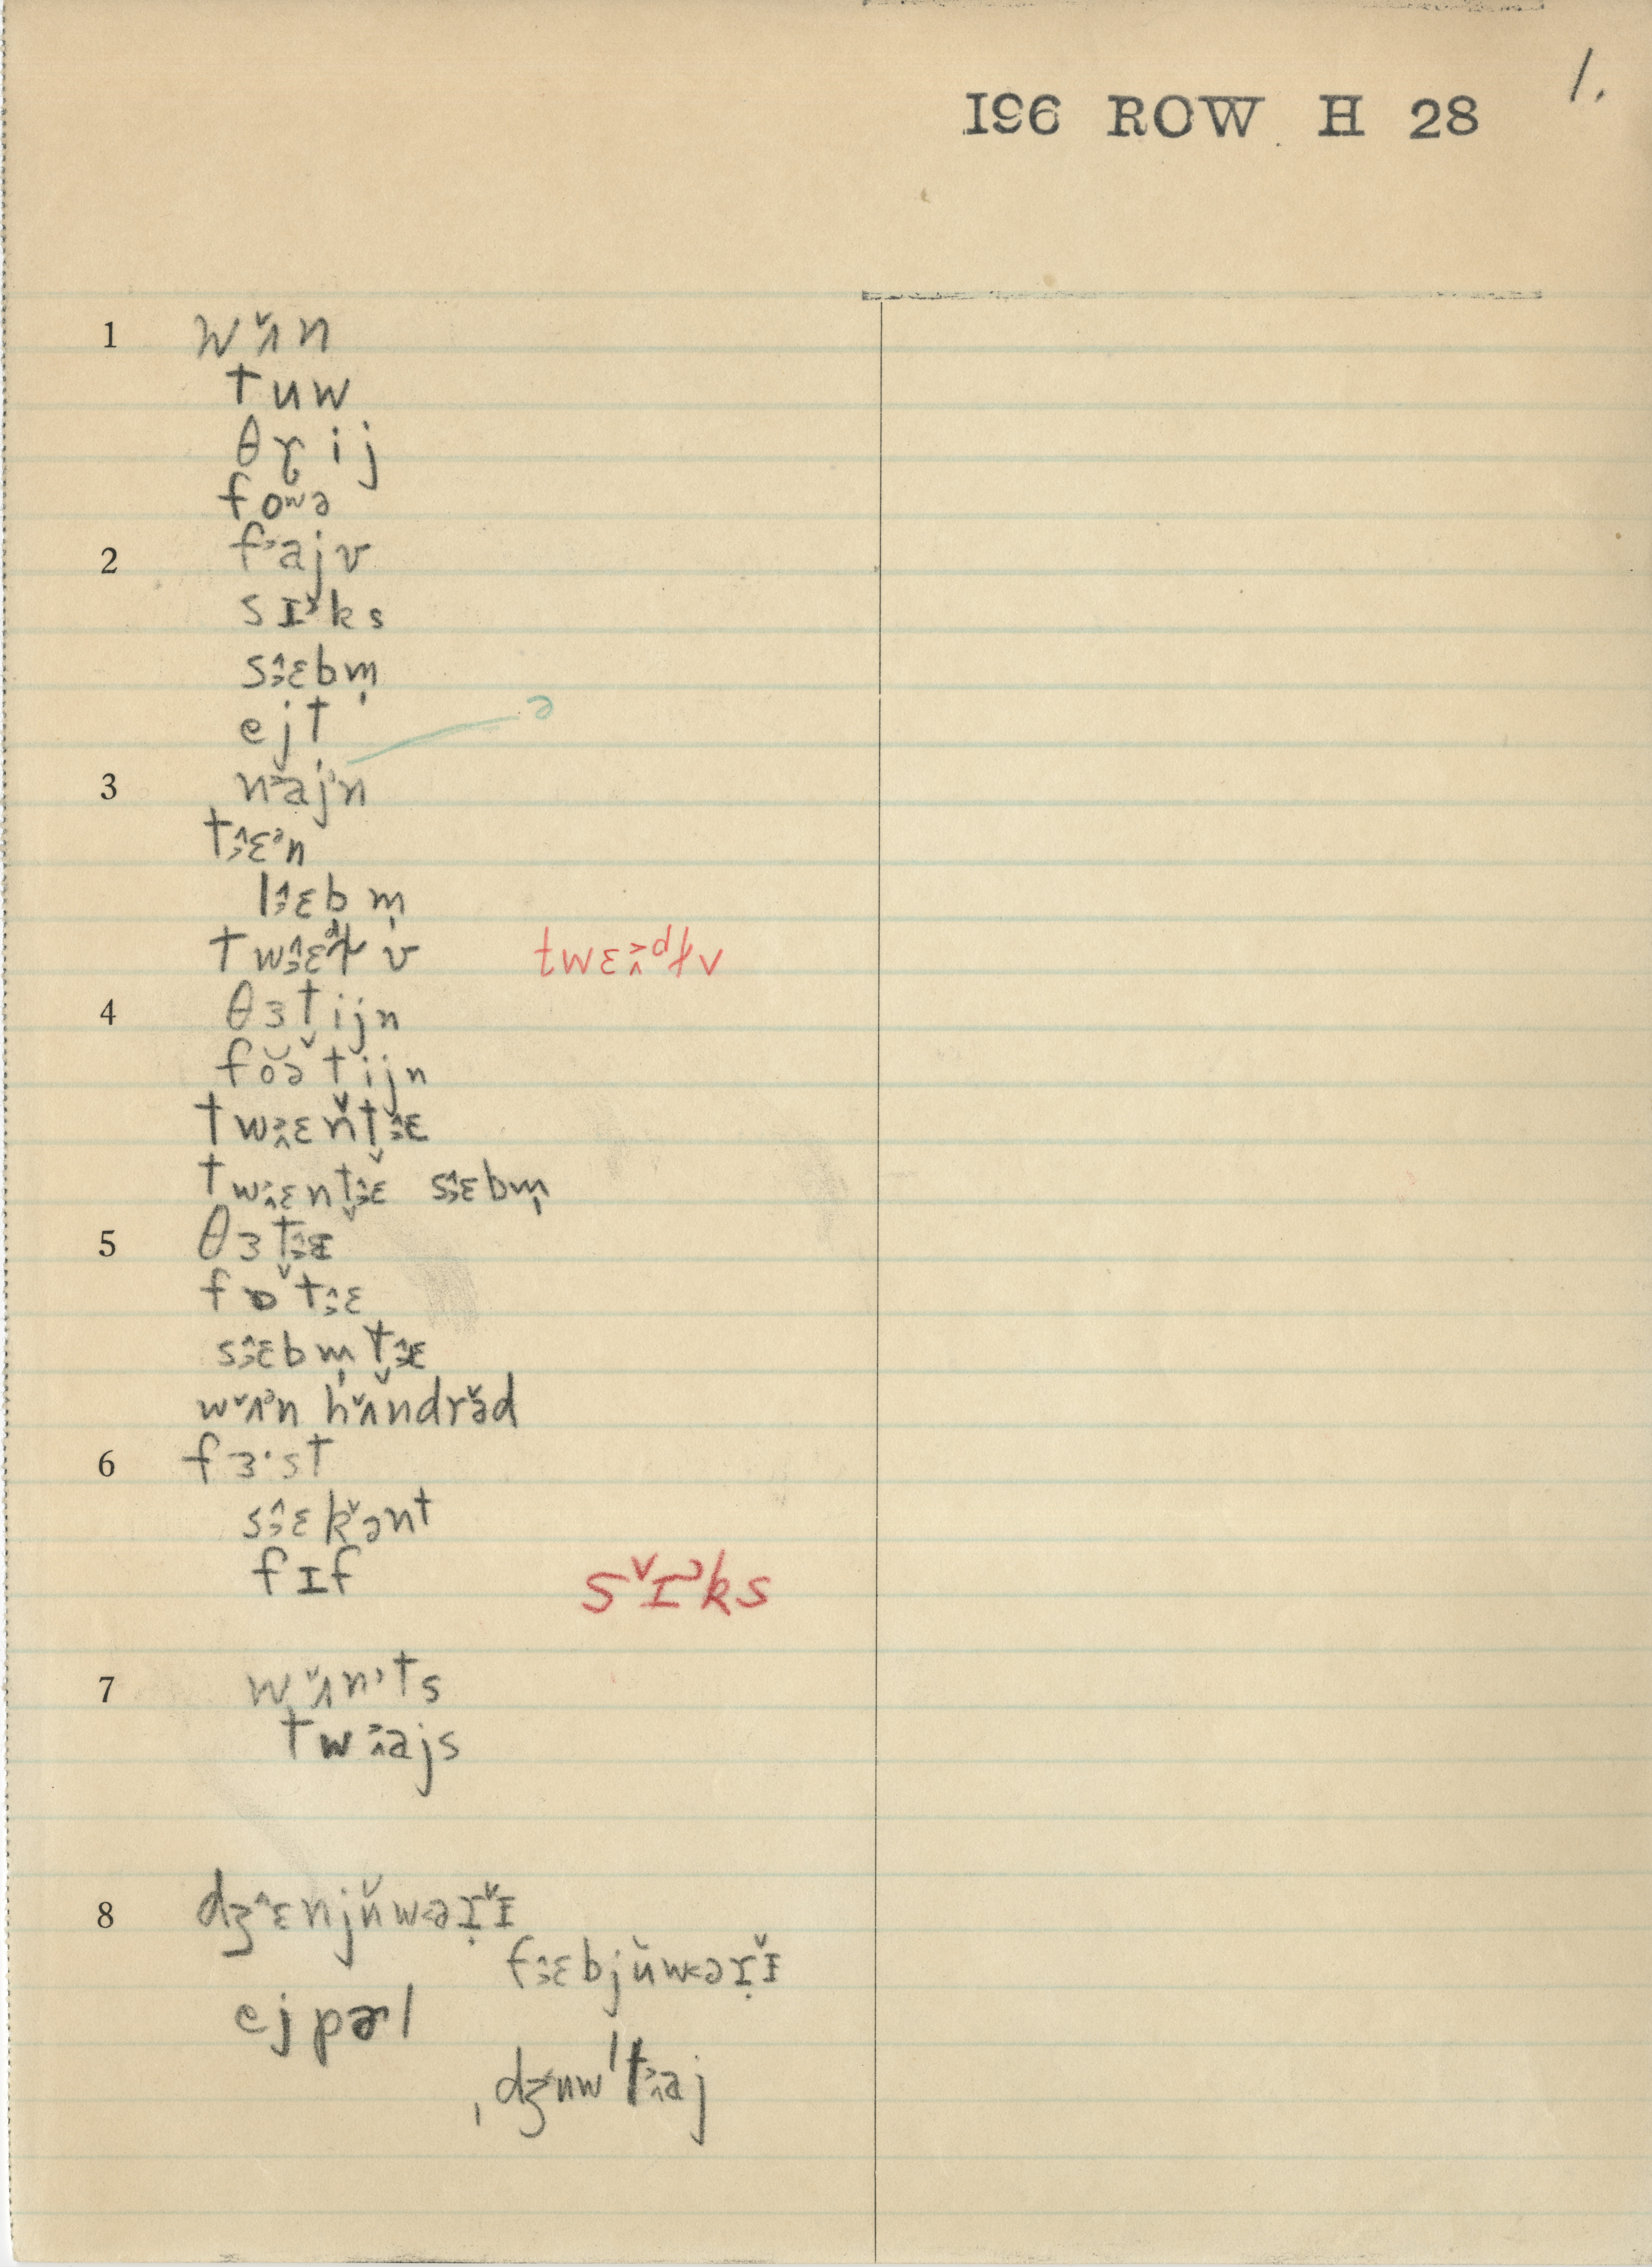 1.
I96 ROW H 28
1 wʌ̌n
tuw
θɽij
foʷə
2 fajv
sɪᵊks
sɛbm̩
ejt ə
3 najᵊn
tɛᵊn
lɛbm̩
twɛᵈɫv twɛᵈɫv
4 θɜtijn
fŏə̆t̬ijn
twɛňtɛ
twɛnt̬ɛ sɛbm̩
5 θɜt̬ɪ
fɒt̬ɛ
sɛbm̩t̬ɛ
wʌ̌ᵊn hʌ̌ndrə̌d
6 fɜ·st
sɛkə̌nt
fɪf sˇɪᵊks
7 wʌ̌nᵊts
twajs
8 dʒɛnjǔwəɪ̣ɪ̌
fɛbjǔwəɪ̣ɪ̌
ejpɚl
ˌdʒuwˈtaj